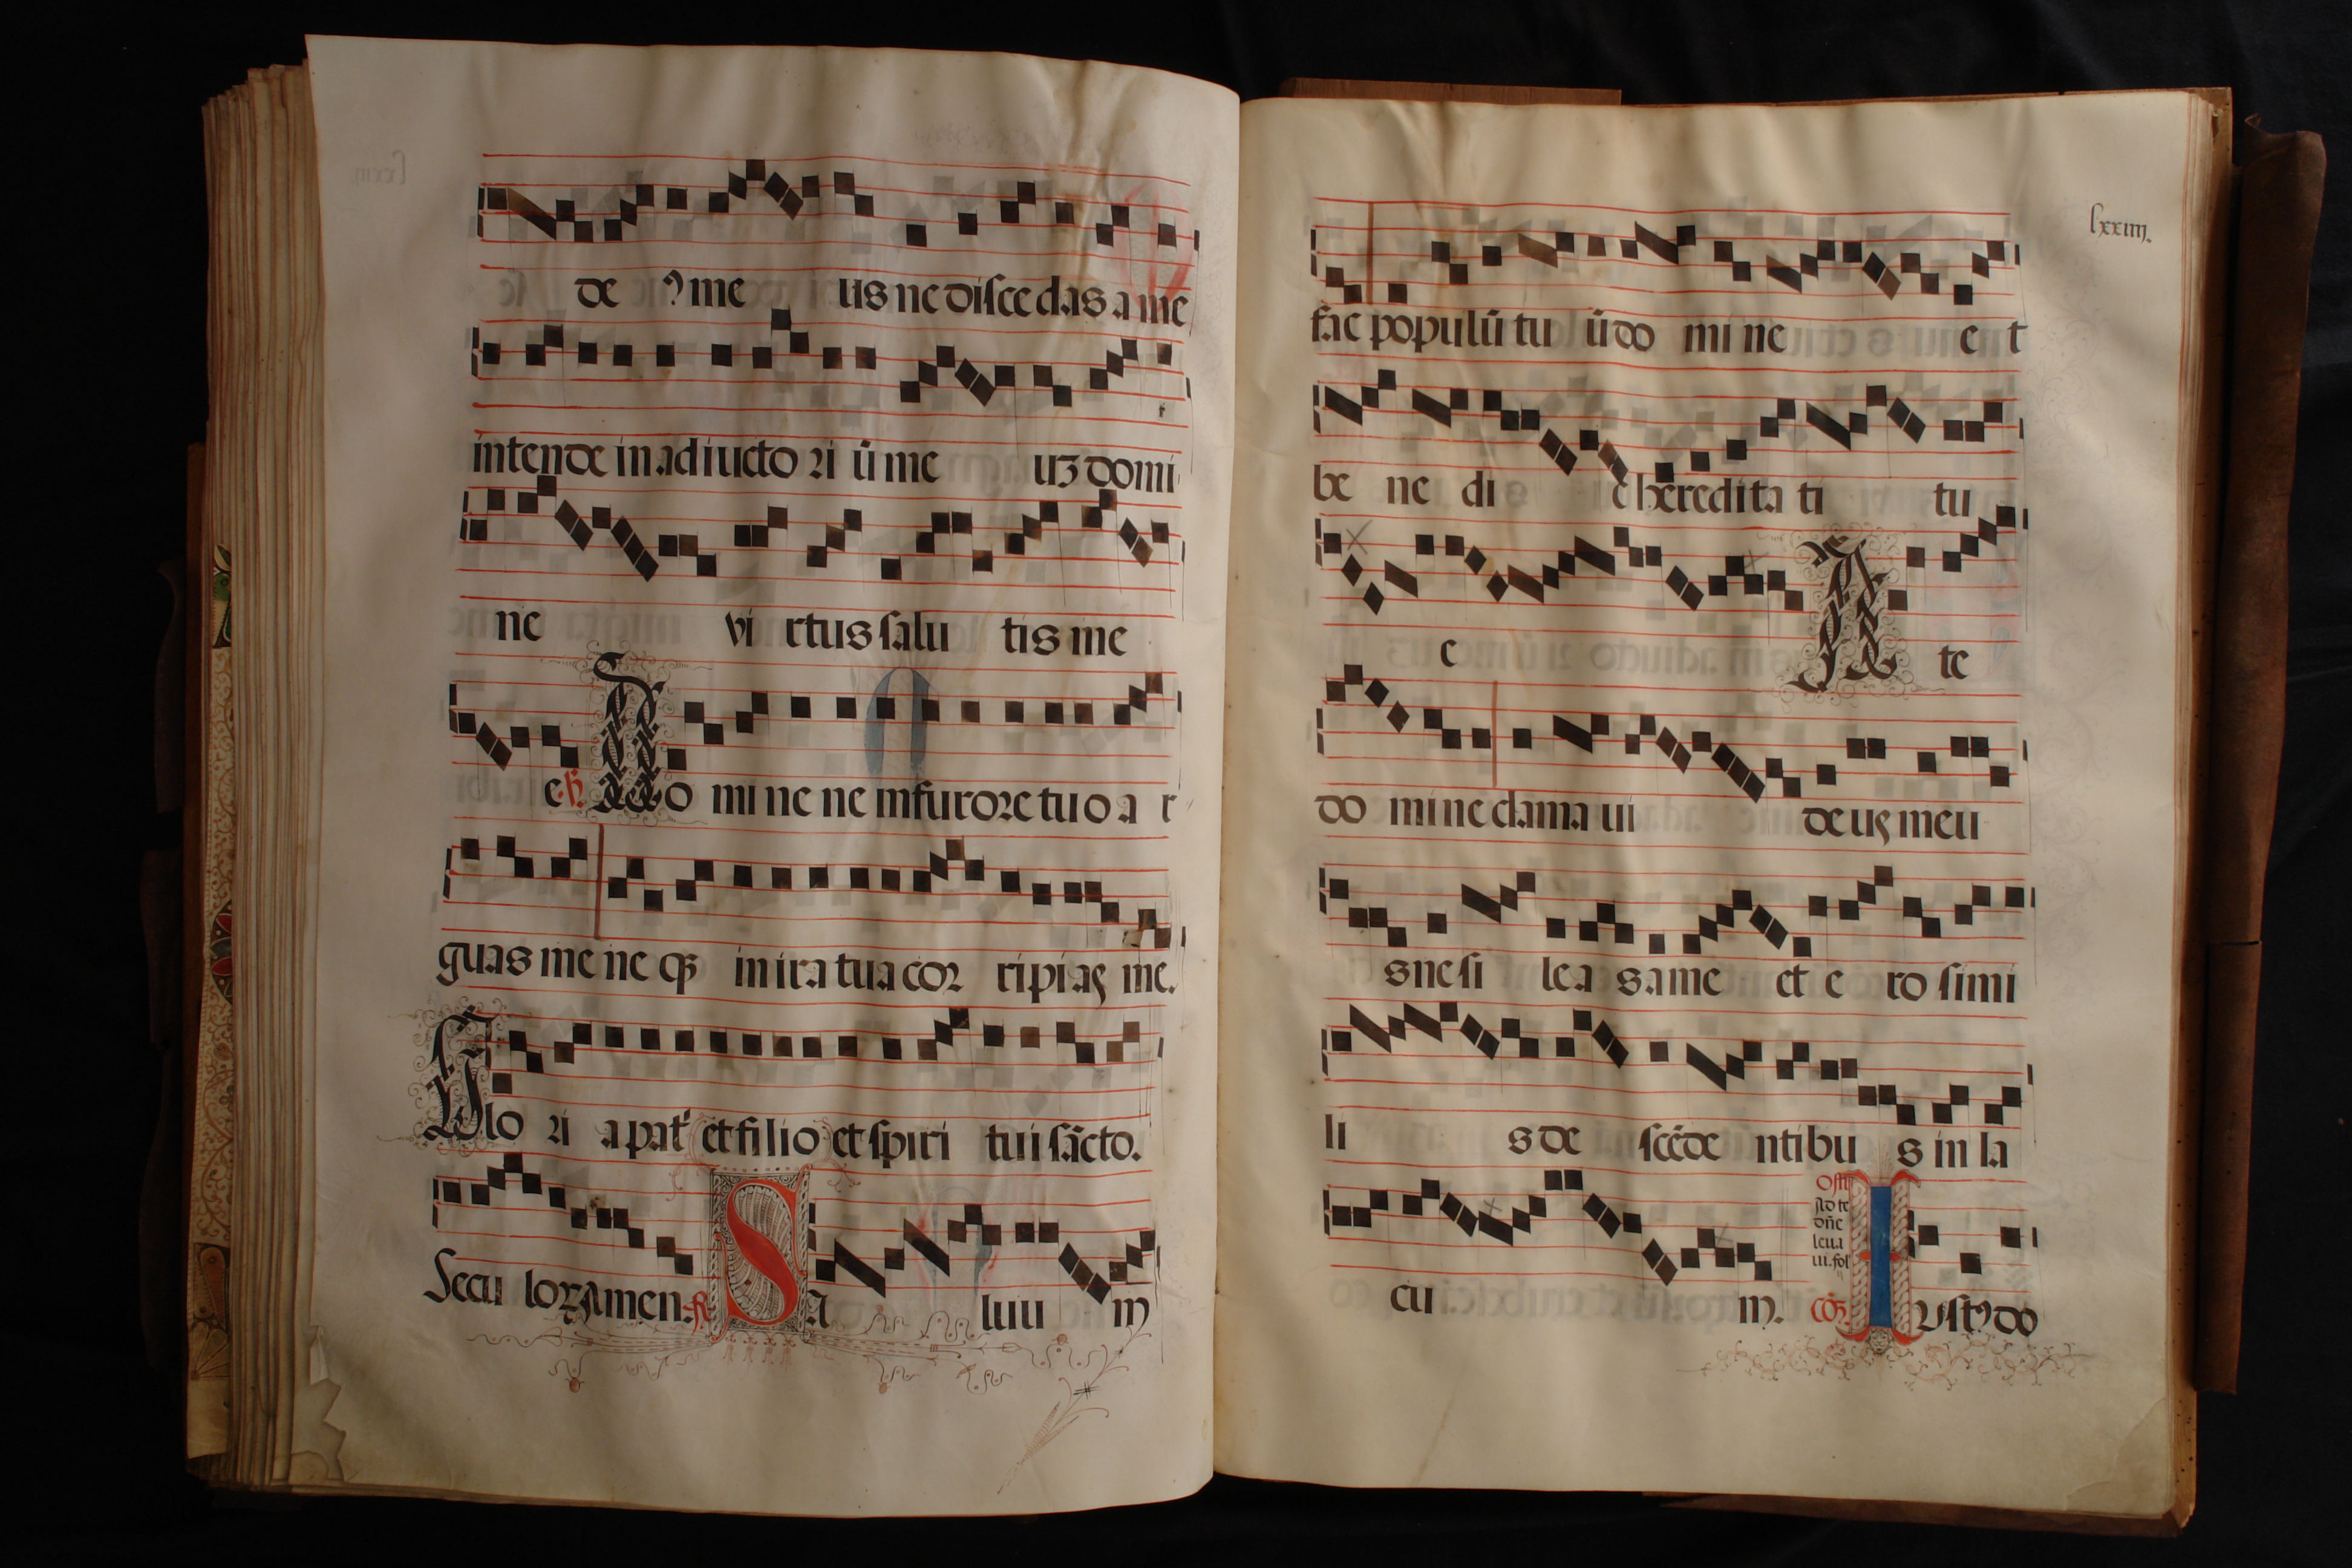 de ꝰ me us ne discedas a me
intende in adiucto ri ū me uz domi
ne vi rtus salu tis me
e. Do mi ne ne in furore tuo a r
guas me ne qꝫ in ira tua cor ripias me.
Glo ri a pat̄ et filio et spiri tui sācto.
Secu loꝝ amen. S a luu m
lxxiiij.
fac populū tu ū do mi ne e t
be ne di c heredita ti tu
e A te
do mi ne clama ui deus meu
s ne si le a s a me et e ro simi
li s de scēde ntibu s in la
cu m.
Ad te
dn̄e
leua
ui. fol
Iustꝰ do